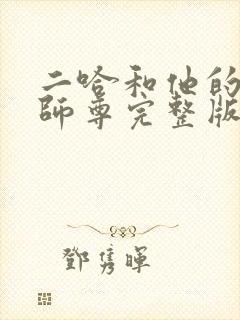 二哈和他的
師尊完整版
鄧雋暉